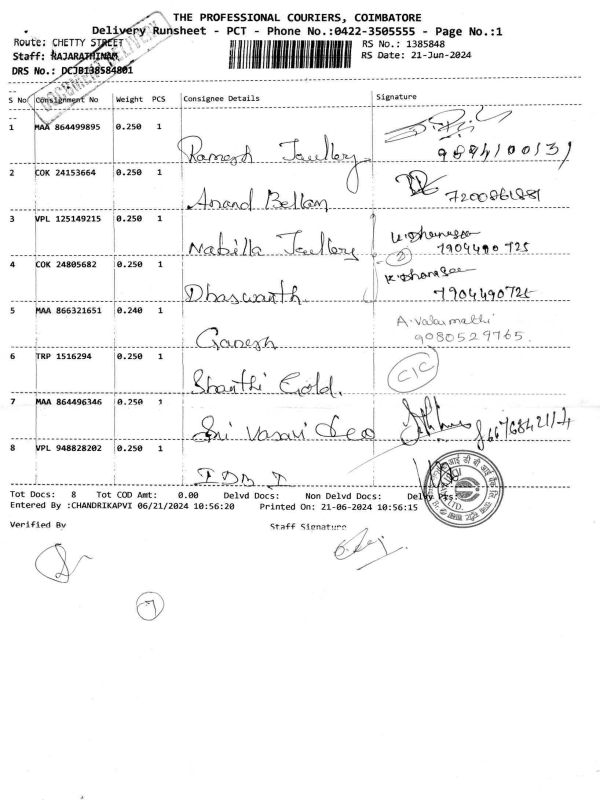 THE PROFESSIONAL COURIERS, COIMBATORE
Delivery Runsheet - PCT - Phone No.:0422-3505555 - Page No.:1
Route: CHETTY STREET
RS No.: 1385848
Staff: RAJARATHINAM
RS Date: 21-Jun-2024
DRS No.: DCJB138584801
S No Consignment No Weight PCS Consignee Details Signature
1 MAA 864499895 0.250 1
Ramesh Jewllery
2 COK 24153664 0.250 1
Anand Bellam 7200861881
3 VPL 125149215 0.250 1
Nabilla Jewllery 2 7904490725
4 COK 24805682 0.250 1
Dhaswanth 7904490725
5 MAA 866321651 0.240 1
A. Valarmathi
Ganesh 9080529765
6 TRP 1516294 0.250 1
Shanthi Gold. CIC
7 MAA 864496346 0.250 1
Sri Vasavi
8 VPL 948828202 0.250 1
IDBI
Tot Docs: 8 Tot COD Amt: 0.00 Delvd Docs: Non Delvd Docs:
Entered By :CHANDRIKAPVI 06/21/2024 10:56:20 Printed On: 21-06-2024 10:56:15
Verified By Staff Signature
7